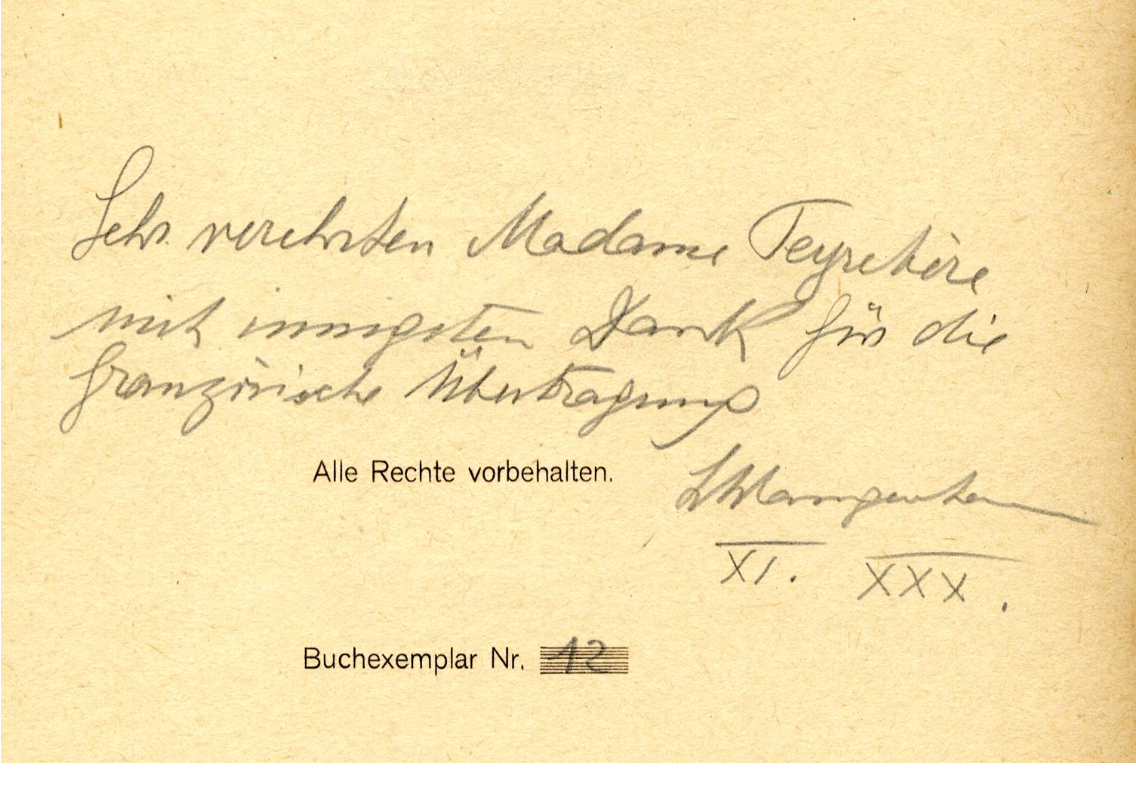 Sehr verehrten Madame Teyretière
mit innigsten Dank für die
französische Übertragung
Alle Rechte vorbehalten.
XI. XXX.
Buchexemplar Nr. 12